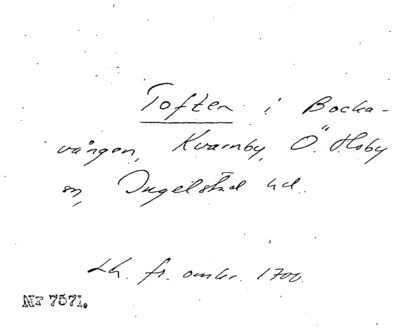 Toften i Bocka-
vången, Kvarnby, Ö. Hoby
sn, Ingelstad hd.
Lh. fr. omkr. 1700.
Nr 7571.